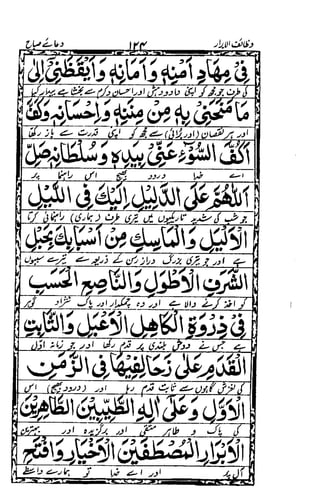 وظائف الابرار ۱۲۴ دعائے صباح
فِيْ مِهَادِ اَمْنِهٖ وَاَمَانِهٖ وَاَيْقَظَنِيْ اِلٰى
کی طرف جو مجھ کو اپنی داد و دہش اور احسان و کرم سے بخشا ہے بیدار کیا
مَا مَنَحَنِيْ بِهٖ مِنْ مِنَنِهٖ وَاِحْسَانِهٖ وَكَفَّ
اور ہر نقصان (اور برائی) سے مجھ کو اپنی قدرت سے باز رکھا
اَكُفَّ السُّوْٓءِ عَنِّيْ بِيَدِهٖ وَسُلْطَانِهٖ صَلِّ
اے خدا درود بھیج اس راہنما پر
اَللّٰهُمَّ عَلَى الدَّلِيْلِ اِلَيْكَ فِي اللَّيْلِ
جو شب کی شدید تاریکیوں میں تیری طرف (ہماری) راہنمائی کرتا
الْاَلْيَلِ وَالْمَاسِكِ مِنْ اَسْبَابِكَ بِحَبْلِ
ہے اور جو تیری بزرگ دراز رسن کے ذریعہ سے تیرے سببوں
الشَّرَفِ الْاَطْوَلِ وَالنَّاصِعِ الْحَسَبِ
کو اخذ کرنے والا ہے اور وہ چمکدار اور پاک نژاد گوہر
فِيْ ذِرْوَةِ الْكَاهِلِ الْاَعْبَلِ وَالثَّابِتِ
ہے جس نے دوش بلندی پر قدم رکھا اور جو زمانہ اول
الْقَدَمِ عَلٰى زَحَالِيْفِهَا فِي الزَّمَنِ
کی لغزش گاہوں سے ثابت قدم رہا اور (درود بھیج) اس
الْاَوَّلِ وَعَلٰى اٰلِهِ الطَّيِّبِيْنَ الطَّاهِرِيْنَ
کی پاک و طاہر متقی اور برگزیدہ اور بہترین
الْاَبْرَارِ الْمُصْطَفَيْنَ الْاَخْيَارِ وَافْتَحِ
آل پر اور اے خدا تو ہمارے واسطے